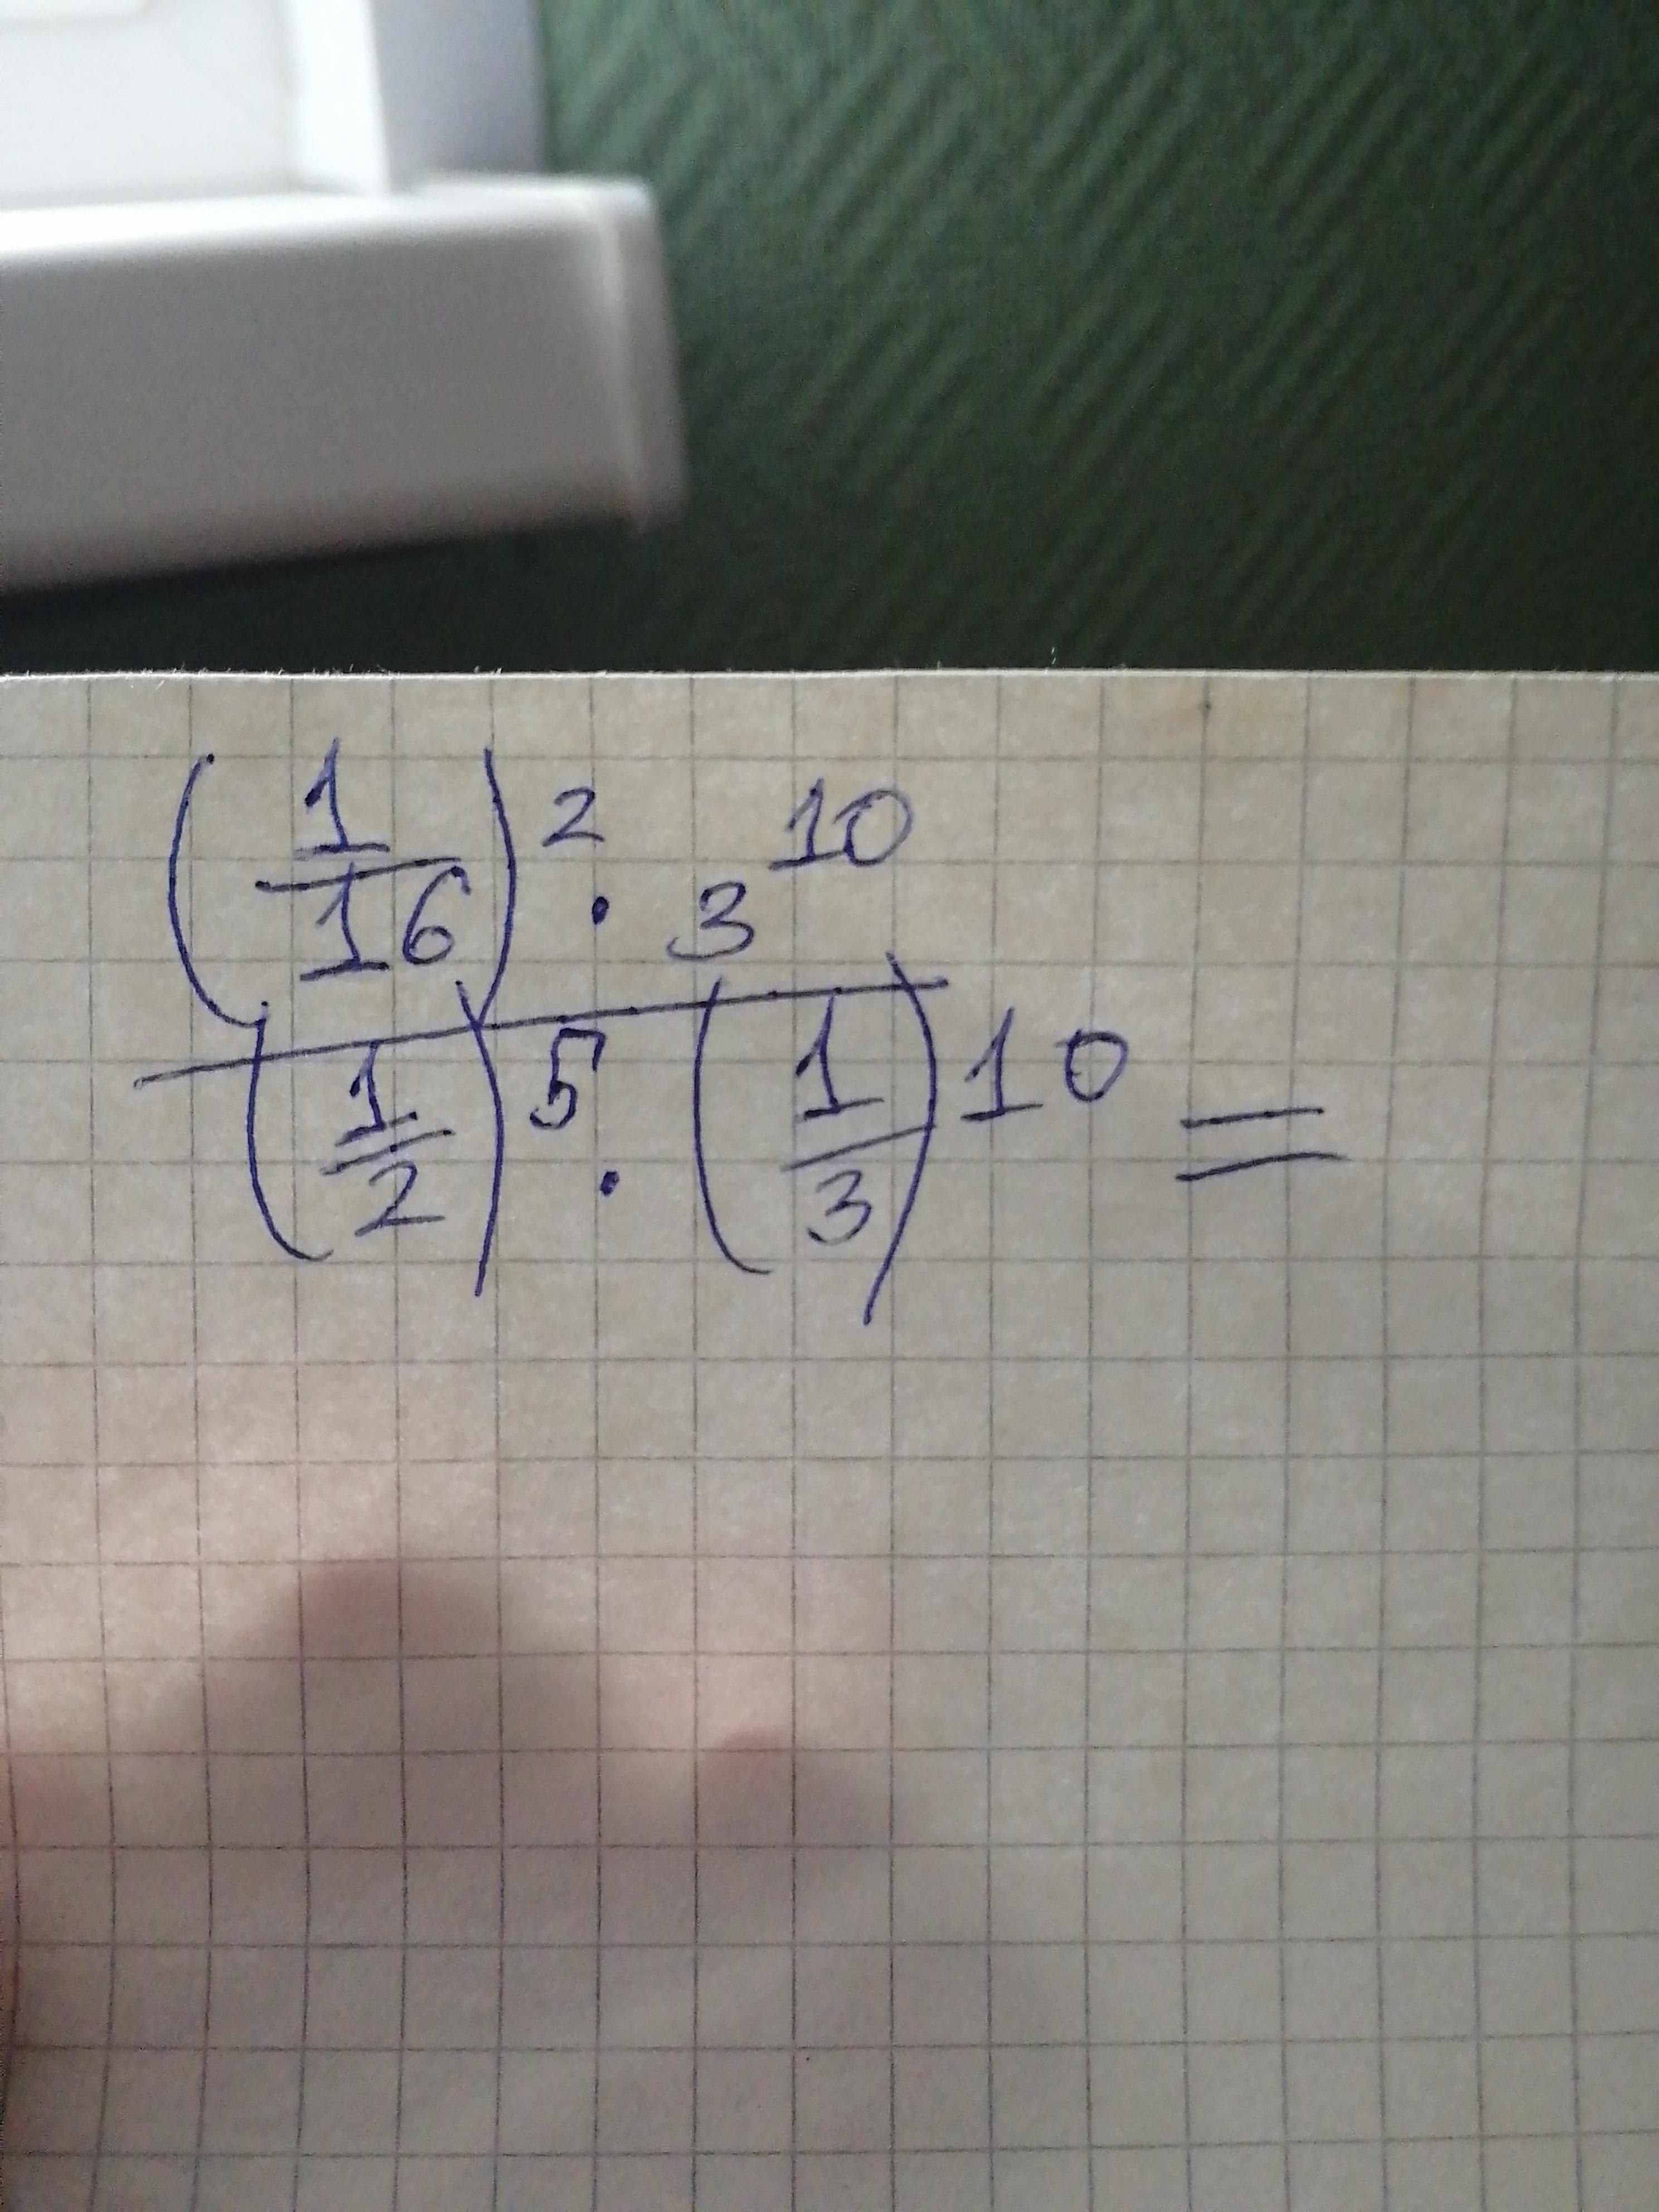 (1/16)² · 3¹⁰
(1/2)⁵ · (1/3)¹⁰ =